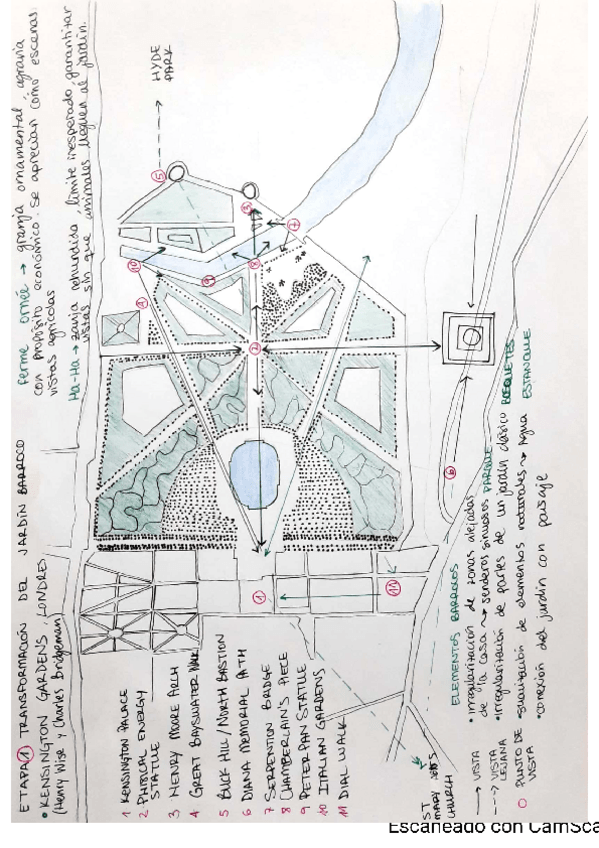 ETAPA 1 TRANSFORMACIÓN DEL JARDÍN BARROCO
• KENSINGTON GARDENS, LONDRES
(Henry Wise y Charles Bridgeman)
ferme ornée → granja ornamental, agraria
con propósito económico. Se aprecian como escenas
vistas agrícolas
Ha-Ha → zanja rehundida, límite inesperado, garantizar
vistas sin que animales lleguen al jardín.
HYDE
PARK
5
3
7
10
8
9
4
2
6
1
11
1 KENSINGTON PALACE
2 PHYSICAL ENERGY
STATUE
3 HENRY MOORE ARCH
4 GREAT BAYSWATER WALK
5 BUCK HILL / NORTH BASTION
6 DIANA MEMORIAL PATH
7 SERPENTION BRIDGE
8 CHAMBERLAIN'S PIECE
9 PETER PAN STATUE
10 ITALIAN GARDENS
11 DIAL WALK
ST
MARY
CHURCH
→ VISTA
--→ VISTA
LEJANA
O PUNTO DE
VISTA
ELEMENTOS BARROCOS
• irregularización de zonas alejadas
de la casa → senderos sinuosos PARQUE
• irregularización de partes de un jardín clásico BOSQUETES
• suavización de elementos naturales → Agua ESTANQUE
• conexión del jardín con paisaje
Escaneado con CamSca